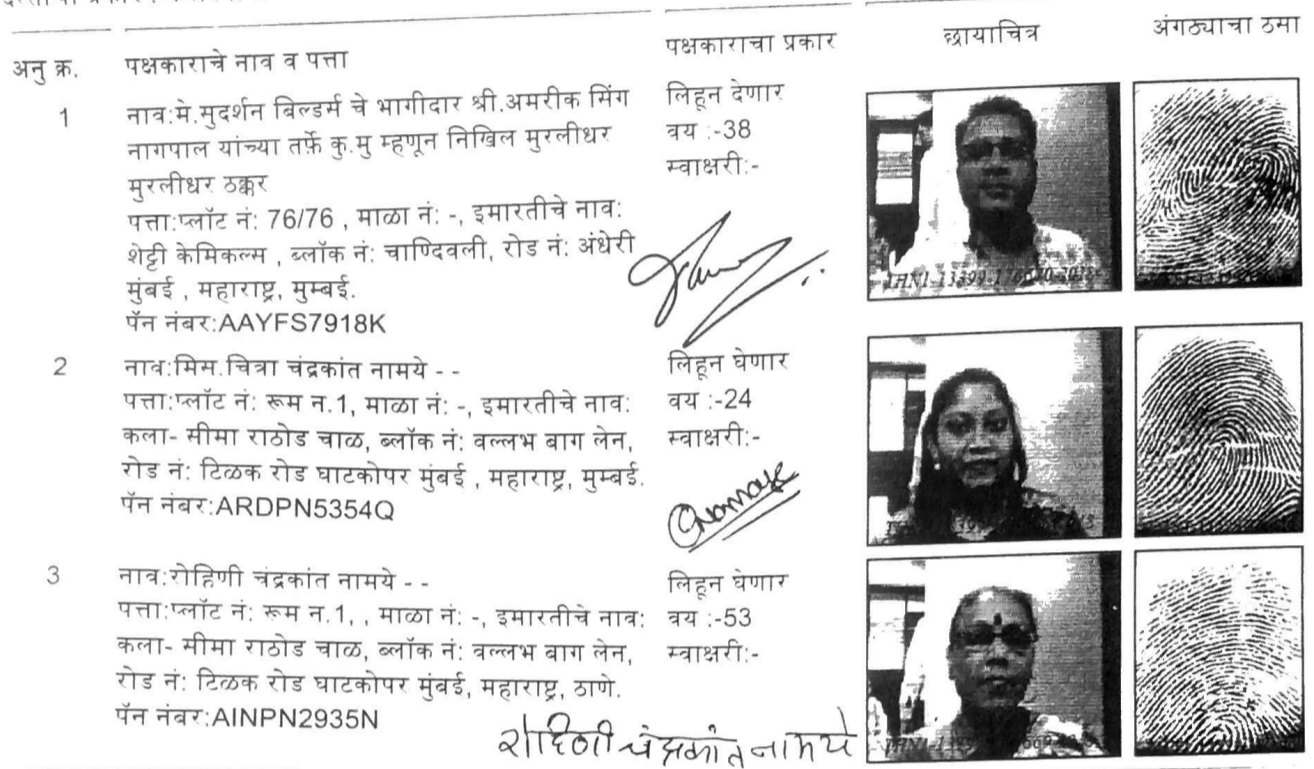 अनु क्र. पक्षकाराचे नाव व पत्ता पक्षकाराचा प्रकार छायाचित्र अंगठ्याचा ठसा
1 नाव:मे.सुदर्शन बिल्डर्स चे भागीदार श्री.अमरीक सिंग
नागपाल यांच्या तर्फे कु.मु म्हणून निखिल मुरलीधर
मुरलीधर ठक्कर
पत्ता:प्लॉट नं: 76/76 , माळा नं: -, इमारतीचे नाव:
शेट्टी केमिकल्स , ब्लॉक नं: चाण्दिवली, रोड नं: अंधेरी
मुंबई , महाराष्ट्र, मुम्बई.
पॅन नंबर:AAYFS7918K
लिहून देणार
वय :-38
स्वाक्षरी:-
2 नाव:मिस.चित्रा चंद्रकांत नामये - -
पत्ता:प्लॉट नं: रूम न.1, माळा नं: -, इमारतीचे नाव:
कला- सीमा राठोड चाळ, ब्लॉक नं: वल्लभ बाग लेन,
रोड नं: टिळक रोड घाटकोपर मुंबई , महाराष्ट्र, मुम्बई.
पॅन नंबर:ARDPN5354Q
लिहून घेणार
वय :-24
स्वाक्षरी:-
3 नाव:रोहिणी चंद्रकांत नामये - -
पत्ता:प्लॉट नं: रूम न.1, , माळा नं: -, इमारतीचे नाव:
कला- सीमा राठोड चाळ, ब्लॉक नं: वल्लभ बाग लेन,
रोड नं: टिळक रोड घाटकोपर मुंबई, महाराष्ट्र, ठाणे.
पॅन नंबर:AINPN2935N
लिहून घेणार
वय :-53
स्वाक्षरी:-
रोहिणी चंद्रकांत नामये